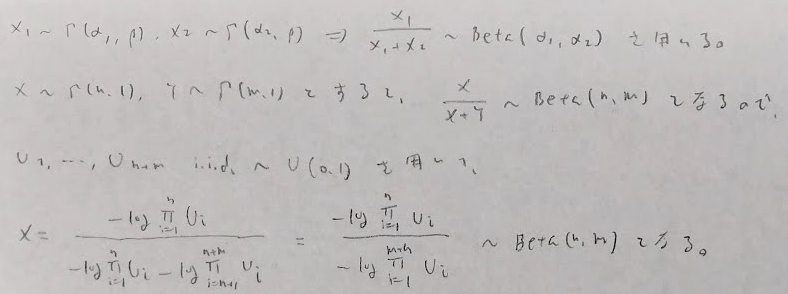 X₁ ~ Γ(α₁, β), X₂ ~ Γ(α₂, β) ⇒ X₁/(X₁+X₂) ~ Beta(α₁, α₂) を用いる。
X ~ Γ(n, 1), Y ~ Γ(m, 1) とすると, X/(X+Y) ~ Beta(n, m) となるので,
U₁, …, Uₙ₊ₘ i.i.d. ~ U(0,1) を用いて,
X = (-log ∏_{i=1}^{n} Uᵢ)/(-log ∏_{i=1}^{n} Uᵢ - log ∏_{i=n+1}^{n+m} Uᵢ) = (-log ∏_{i=1}^{n} Uᵢ)/(-log ∏_{i=1}^{m+n} Uᵢ) ~ Beta(n, m) となる。